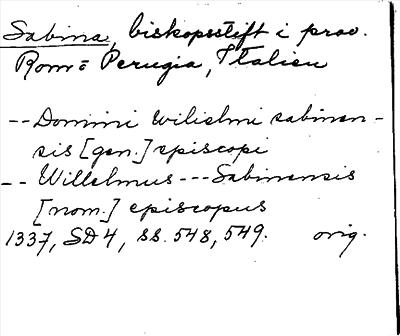 Sabina, biskopsstift i prov.
Rom o Perugia, Italien
-- Domini Wilielmi sabinen-
sis [gen.] episcopi
-- Willelmus --- Sabinensis
[nom.] episcopus
1337, SD 4, ss. 548, 549. orig.